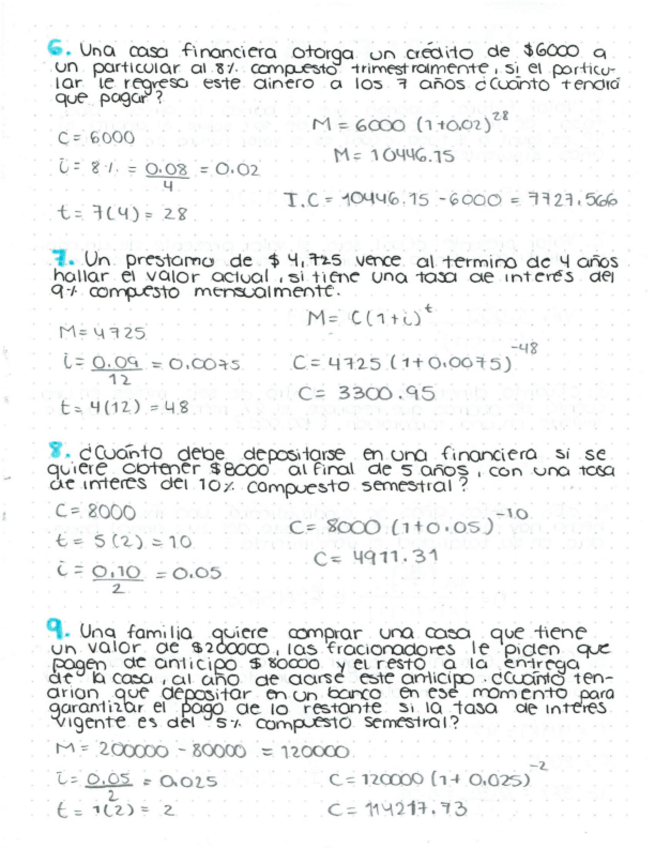 6. Una casa financiera otorga un crédito de $6000 a
un particular al 8% compuesto trimestralmente, si el particu-
lar le regresa este dinero a los 7 años ¿Cuánto tendrá
que pagar?
C = 6000
i = 8% = 0.08/4 = 0.02
t = 7(4) = 28
M = 6000 (1+0.02)^28
M = 10446.15
I.C = 10446.15 - 6000 = 7727.566
7. Un prestamo de $4,725 vence al termino de 4 años
hallar el valor actual, si tiene una tasa de interés del
9% compuesto mensualmente.
M = 4725
i = 0.09/12 = 0.0075
t = 4(12) = 48
M = C(1+i)^t
C = 4725 (1+0.0075)^-48
C = 3300.95
8. ¿Cuánto debe depositarse en una financiera si se
quiere obtener $8000 al final de 5 años, con una tasa
de interes del 10% compuesto semestral?
C = 8000
t = 5(2) = 10
i = 0.10/2 = 0.05
C = 8000 (1+0.05)^-10
C = 4911.31
9. Una familia quiere comprar una casa que tiene
un valor de $200000, las fracionadores le piden que
pagen de anticipo $80000 y el resto a la entrega
de la casa, al año de darse este anticipo. ¿Cuánto ten-
arian que depositar en un banco en ese momento para
garantizar el pago de lo restante si la tasa de interés
vigente es del 5% compuesto semestral?
M = 200000 - 80000 = 120000
i = 0.05/2 = 0.025
t = 1(2) = 2
C = 120000 (1+0.025)^-2
C = 114217.73